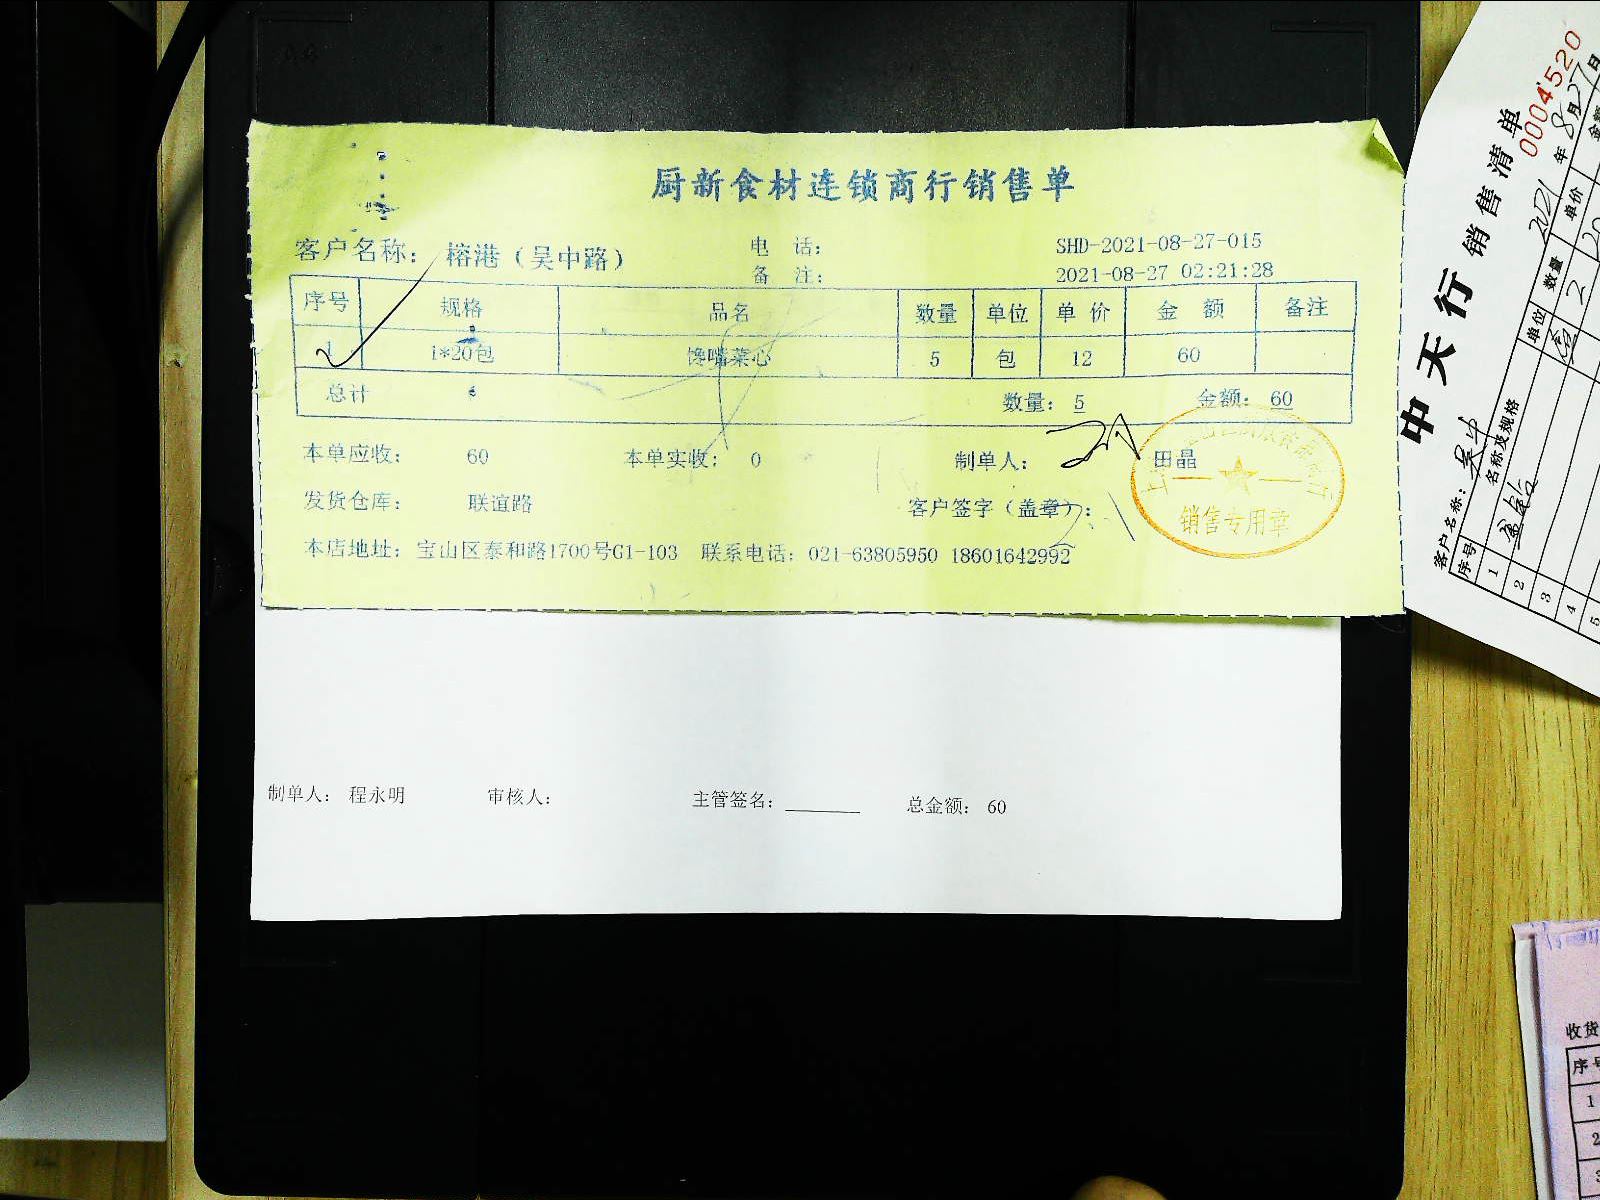 厨新食材连锁商行销售单
客户名称： 榕港（吴中路） 电 话： SHD-2021-08-27-015
备 注： 2021-08-27 02:21:28
序号 规格 品名 数量 单位 单 价 金 额 备注
1 1*20包 馋嘴菜心 5 包 12 60
总计 数量：5 金额：60
本单应收： 60 本单实收： 0 制单人： 田晶
发货仓库： 联谊路 客户签字（盖章）：
销售专用章
本店地址：宝山区泰和路1700号G1-103 联系电话：021-63805950 18601642992
制单人： 程永明 审核人： 主管签名： 总金额： 60
中天行销售清单
0004520
2021年8月27日
客户名称：吴中
序号 名称及规格 单位 数量 单价 金额
1 2
2
3
4
5
收货
序号
1
2
3